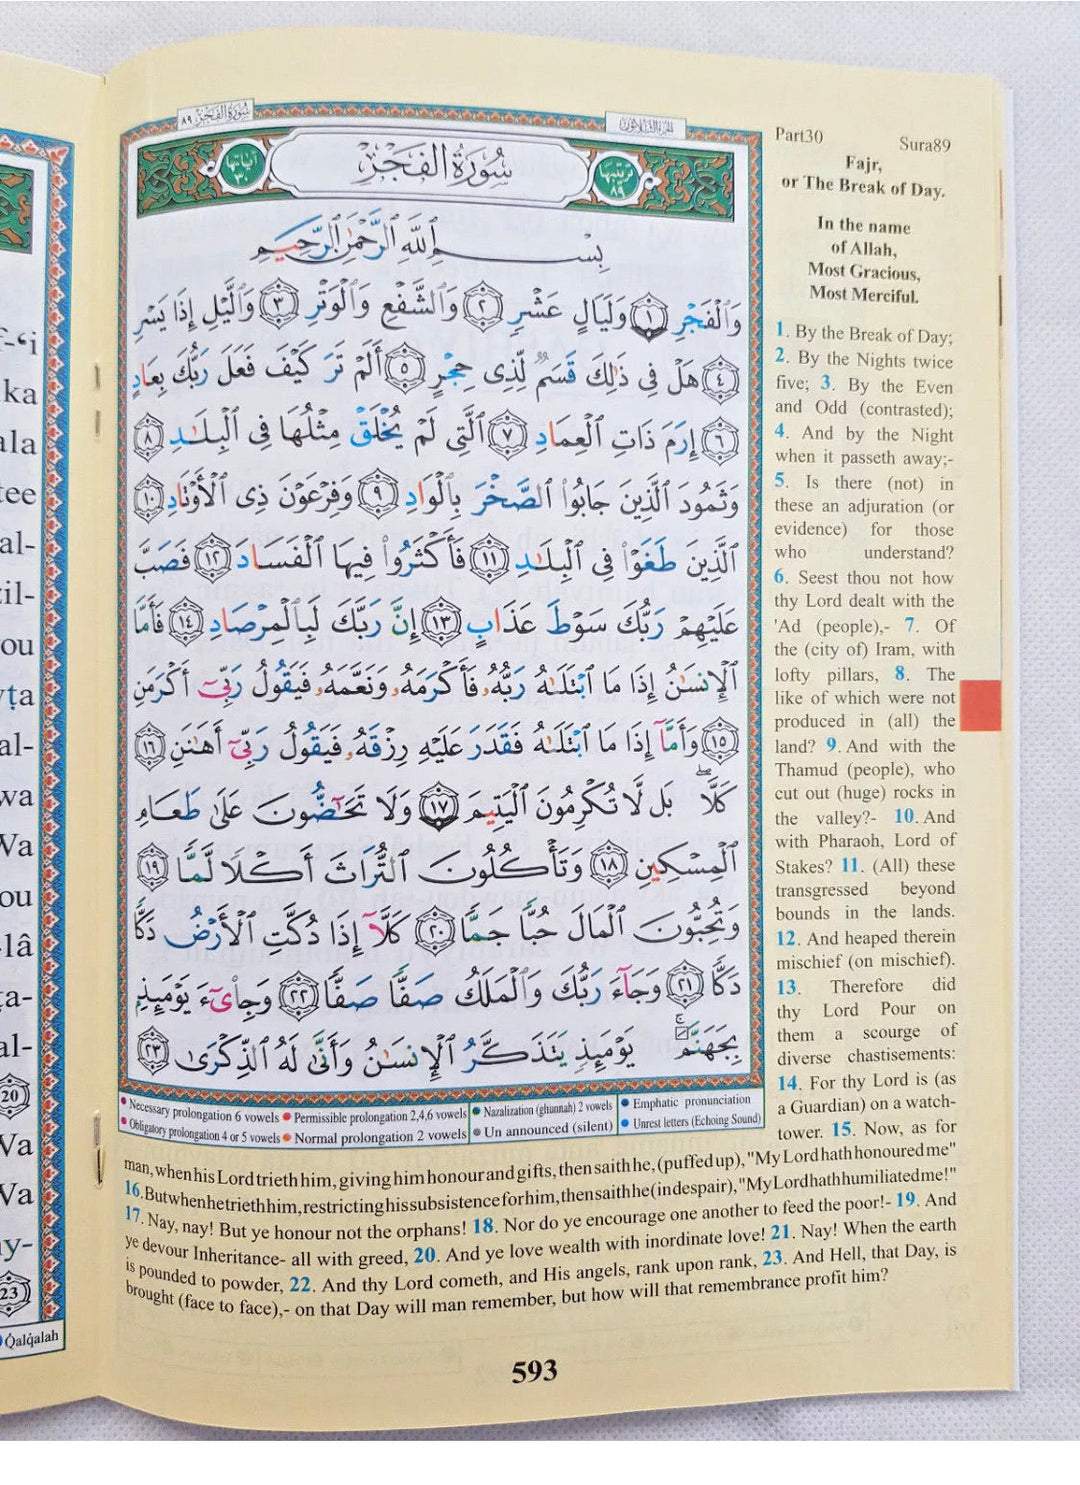 سُورَةُ الفَجْرِ ٨٩
الجزء الثلاثون
آيَاتُهَا ٣٠
سُورَةُ الفَجْرِ
تَرْتِيبُهَا ٨٩
بِسْمِ ٱللَّهِ ٱلرَّحْمَٰنِ ٱلرَّحِيمِ
وَٱلْفَجْرِ ١ وَلَيَالٍ عَشْرٍ ٢ وَٱلشَّفْعِ وَٱلْوَتْرِ ٣ وَٱلَّيْلِ إِذَا يَسْرِ
٤ هَلْ فِى ذَٰلِكَ قَسَمٌ لِّذِى حِجْرٍ ٥ أَلَمْ تَرَ كَيْفَ فَعَلَ رَبُّكَ بِعَادٍ
٦ إِرَمَ ذَاتِ ٱلْعِمَادِ ٧ ٱلَّتِى لَمْ يُخْلَقْ مِثْلُهَا فِى ٱلْبِلَٰدِ ٨
وَثَمُودَ ٱلَّذِينَ جَابُوا۟ ٱلصَّخْرَ بِٱلْوَادِ ٩ وَفِرْعَوْنَ ذِى ٱلْأَوْتَادِ ١٠
ٱلَّذِينَ طَغَوْا۟ فِى ٱلْبِلَٰدِ ١١ فَأَكْثَرُوا۟ فِيهَا ٱلْفَسَادَ ١٢ فَصَبَّ
عَلَيْهِمْ رَبُّكَ سَوْطَ عَذَابٍ ١٣ إِنَّ رَبَّكَ لَبِٱلْمِرْصَادِ ١٤ فَأَمَّا
ٱلْإِنسَٰنُ إِذَا مَا ٱبْتَلَىٰهُ رَبُّهُۥ فَأَكْرَمَهُۥ وَنَعَّمَهُۥ فَيَقُولُ رَبِّىٓ أَكْرَمَنِ
١٥ وَأَمَّآ إِذَا مَا ٱبْتَلَىٰهُ فَقَدَرَ عَلَيْهِ رِزْقَهُۥ فَيَقُولُ رَبِّىٓ أَهَٰنَنِ ١٦
كَلَّا ۖ بَل لَّا تُكْرِمُونَ ٱلْيَتِيمَ ١٧ وَلَا تَحَٰٓضُّونَ عَلَىٰ طَعَامِ
ٱلْمِسْكِينِ ١٨ وَتَأْكُلُونَ ٱلتُّرَاثَ أَكْلًا لَّمًّا ١٩
وَتُحِبُّونَ ٱلْمَالَ حُبًّا جَمًّا ٢٠ كَلَّآ إِذَا دُكَّتِ ٱلْأَرْضُ دَكًّا
دَكًّا ٢١ وَجَآءَ رَبُّكَ وَٱلْمَلَكُ صَفًّا صَفًّا ٢٢ وَجِا۟ىٓءَ يَوْمَئِذٍۭ
بِجَهَنَّمَ ۚ يَوْمَئِذٍ يَتَذَكَّرُ ٱلْإِنسَٰنُ وَأَنَّىٰ لَهُ ٱلذِّكْرَىٰ ٢٣
Necessary prolongation 6 vowels Permissible prolongation 2,4,6 vowels Nazalization (ghunnah) 2 vowels Emphatic pronunciation
Obligatory prolongation 4 or 5 vowels Normal prolongation 2 vowels Un announced (silent) Unrest letters (Echoing Sound)
Part30 Sura89
Fajr,
or The Break of Day.
In the name
of Allah,
Most Gracious,
Most Merciful.
1. By the Break of Day;
2. By the Nights twice
five; 3. By the Even
and Odd (contrasted);
4. And by the Night
when it passeth away;-
5. Is there (not) in
these an adjuration (or
evidence) for those
who understand?
6. Seest thou not how
thy Lord dealt with the
'Ad (people),- 7. Of
the (city of) Iram, with
lofty pillars, 8. The
like of which were not
produced in (all) the
land? 9. And with the
Thamud (people), who
cut out (huge) rocks in
the valley?- 10. And
with Pharaoh, Lord of
Stakes? 11. (All) these
transgressed beyond
bounds in the lands.
12. And heaped therein
mischief (on mischief).
13. Therefore did
thy Lord Pour on
them a scourge of
diverse chastisements:
14. For thy Lord is (as
a Guardian) on a watch-
tower. 15. Now, as for
man, when his Lord trieth him, giving him honour and gifts, then saith he, (puffed up), "My Lord hath honoured me"
16. But when he trieth him, restricting his subsistence for him, then saith he (in despair), "My Lord hath humiliated me!"
17. Nay, nay! But ye honour not the orphans! 18. Nor do ye encourage one another to feed the poor!- 19. And
ye devour Inheritance- all with greed, 20. And ye love wealth with inordinate love! 21. Nay! When the earth
is pounded to powder, 22. And thy Lord cometh, and His angels, rank upon rank, 23. And Hell, that Day, is
brought (face to face),- on that Day will man remember, but how will that remembrance profit him?
593
f-‘i
ka
ala
tee
al-
zil-
ou
yṭa
al-
wa
Va
ou
-lâ
ṭa-
al-
20
Va
Va
y-
23
Qalqalah